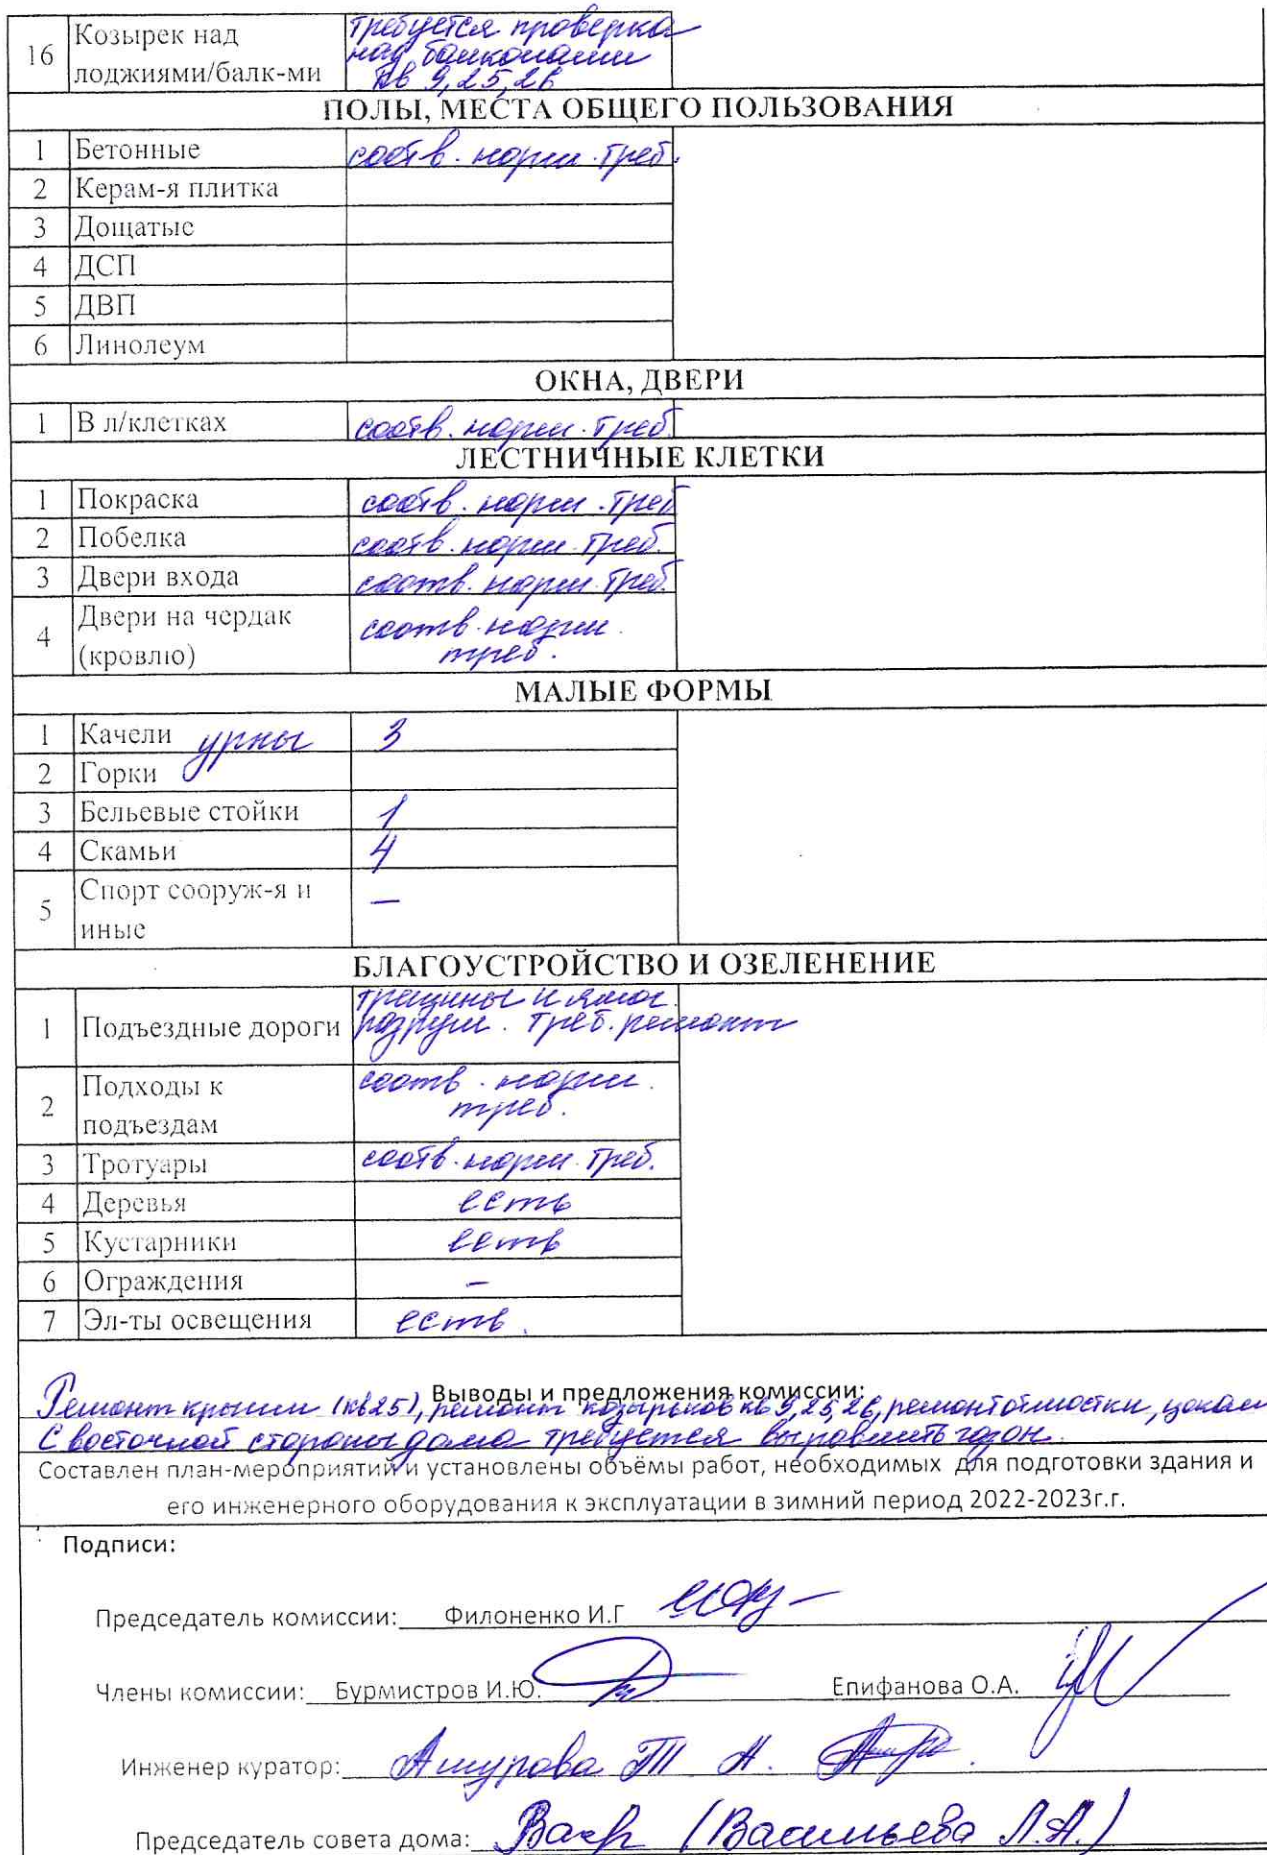 16 Козырек над лоджиями/балк-ми требуется проверка над балконами кв 9, 25, 26
ПОЛЫ, МЕСТА ОБЩЕГО ПОЛЬЗОВАНИЯ
1 Бетонные соотв. норм. треб.
2 Керам-я плитка
3 Дощатые
4 ДСП
5 ДВП
6 Линолеум
ОКНА, ДВЕРИ
1 В л/клетках соотв. норм. треб.
ЛЕСТНИЧНЫЕ КЛЕТКИ
1 Покраска соотв. норм. треб
2 Побелка соотв. норм. треб.
3 Двери входа соотв. норм. треб.
4 Двери на чердак (кровлю) соотв. норм. треб.
МАЛЫЕ ФОРМЫ
1 Качели урны 3
2 Горки
3 Бельевые стойки 1
4 Скамьи 4
5 Спорт сооруж-я и иные —
БЛАГОУСТРОЙСТВО И ОЗЕЛЕНЕНИЕ
1 Подъездные дороги трещины и ямог. разруш. треб. ремонт
2 Подходы к подъездам соотв. норм. треб.
3 Тротуары соотв. норм. треб.
4 Деревья есть
5 Кустарники есть
6 Ограждения –
7 Эл-ты освещения есть.
Выводы и предложения комиссии:
Ремонт крыши (кв25), ремонт козырьков кв 9, 25, 26, ремонт отмостки, цоколя
С восточной стороны дома требуется выровнить газон.
Составлен план-мероприятий и установлены объёмы работ, необходимых для подготовки здания и
его инженерного оборудования к эксплуатации в зимний период 2022-2023г.г.
Подписи:
Председатель комиссии: Филоненко И.Г
Члены комиссии: Бурмистров И.Ю. Епифанова О.А.
Инженер куратор: Ашурова Т А.
Председатель совета дома: (Васильева Л.А.)